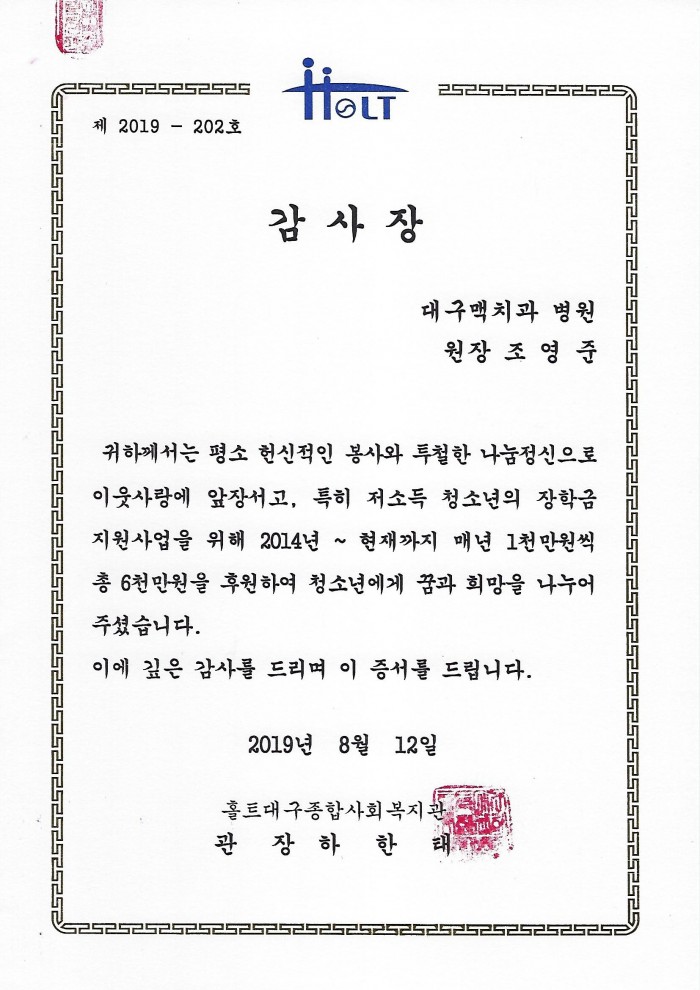 HOLT
제 2019 - 202호
감 사 장
대구맥치과 병원
원장 조 영 준
귀하께서는 평소 헌신적인 봉사와 투철한 나눔정신으로
이웃사랑에 앞장서고, 특히 저소득 청소년의 장학금
지원사업을 위해 2014년 ~ 현재까지 매년 1천만원씩
총 6천만원을 후원하여 청소년에게 꿈과 희망을 나누어
주셨습니다.
이에 깊은 감사를 드리며 이 증서를 드립니다.
2019년 8월 12일
홀트대구종합사회복지관
관 장 하 한 태